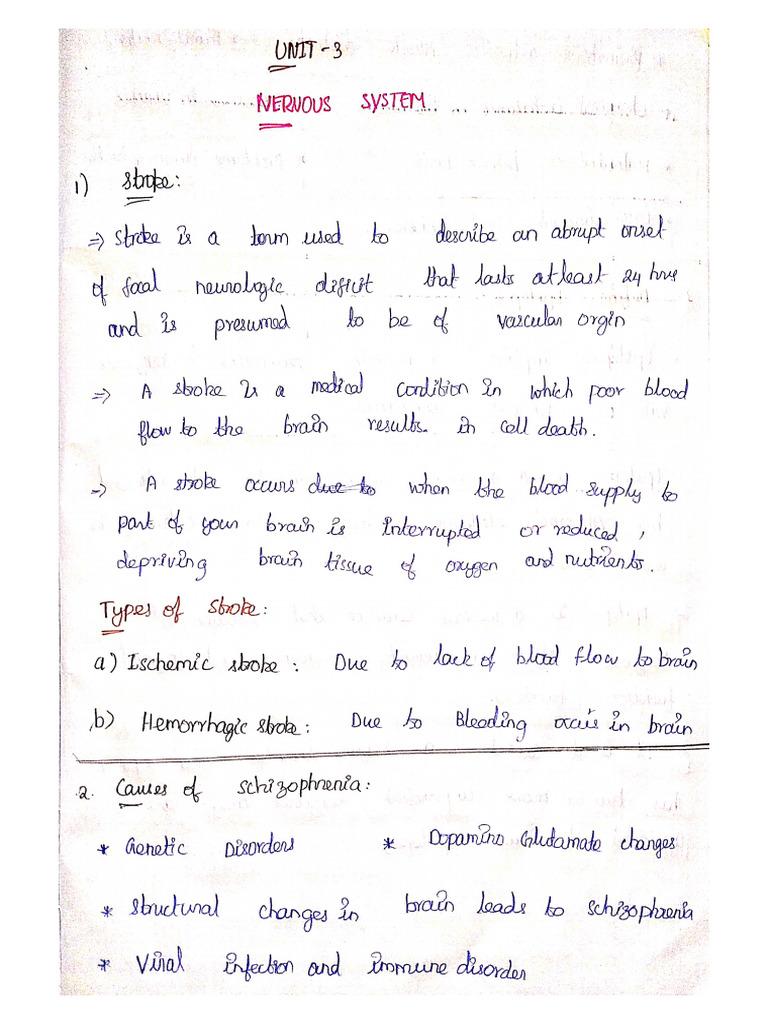 UNIT-3
NERVOUS SYSTEM
1) Stroke:
⇒ Stroke is a term used to describe an abrupt onset
of focal neurologic dificit that lasts atleast 24 hrs
and is presumed to be of vascular orgin
⇒ A stroke is a medical condition in which poor blood
flow to the brain results in cell death.
⇒ A stroke occurs due to when the blood supply to
part of your brain is interrupted or reduced,
depriving brain tissue of oxygen and nutrients.
Types of stroke:
a) Ischemic stroke: Due to lack of blood flow to brain
b) Hemorrhagic stroke: Due to Bleeding occus in brain
2. Causes of schizophrenia:
* Genetic Disorders * Dopamino Glutamate changes
* Structural changes in brain leads to schizophrenia
* Viral infection and immune disorder